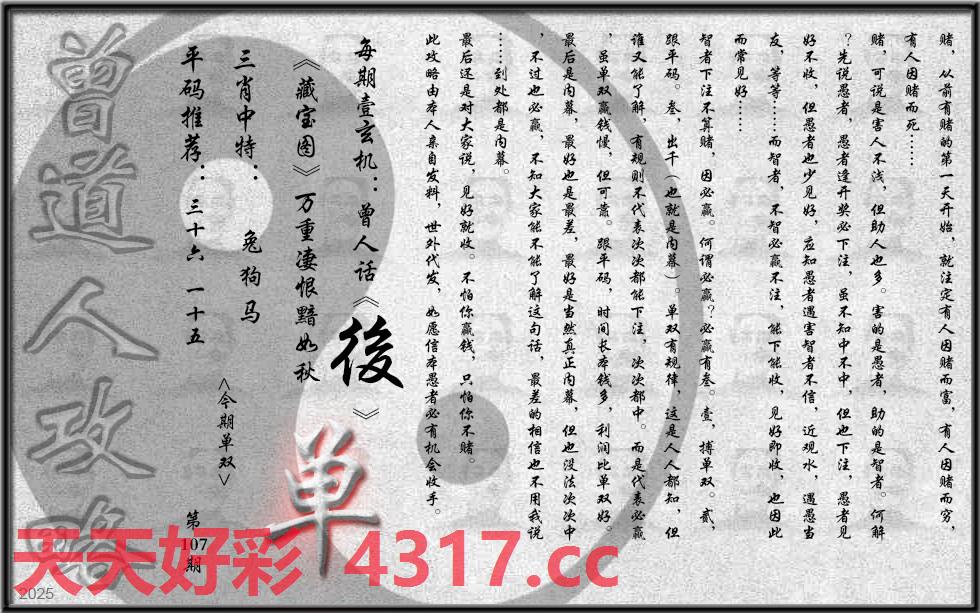 赌，从前有赌的第一天开始，就注定有人因赌而富，有人因赌而穷，
有人因赌而死……
赌，可说是害人不浅，但助人也多。害的是愚者，助的是智者。何解
？先说愚者，愚者逢开奖必下注，虽不知中不中，但也下注，愚者见
好不收，但愚者也少见好，应知愚者遇害智者不信，近观水，遇愚当
友，等等……而智者，不智必赢不注，能下能收，见好即收，也因此
而常见好……
智者下注不算赌，因必赢。何谓必赢？必赢有叁。壹，搏单双。贰，
跟平码。叁，出千（也就是内幕）。单双有规律，这是人人都知，但
谁又能了解，有规则不代表次次都能下注，次次都中。而是代表必赢
，虽单双赢钱慢，但可靠。跟平码，时间长本钱多，利润比单双好。
最后是内幕，最好也是最差，最好是当然真正内幕，但也没法次次中
，不过也必赢，不知大家能不能了解这句话，最差的相信也不用我说
……到处都是内幕。
最后还是对大家说，见好就收。不怕你赢钱，只怕你不赌。
此攻略由本人亲自发料，世外代发，如愿信本愚者必有机会收手。
每期壹玄机：曾人话《後》
《藏宝图》万重凄恨黯如秋
三肖中特：兔狗马
平码推荐：三十六 一十五
<今期单双>
单
第107期
曾道人攻略
天天好彩 4317.cc
2025